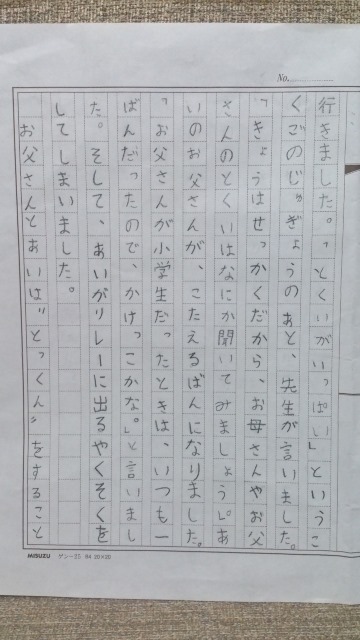 No.
行きました。「とくいがいっぱい」というこ
くごのじゅぎょうのあと、先生が言いました。
「きょうはせっかくだから、お母さんやお父
さんのとくいはなにか聞いてみましょう。」あ
いのお父さんが、こたえるばんになりました。
「お父さんが小学生だったときは、いつも一
ばんだったので、かけっこかな。」と言いまし
た。そして、あいがリレーに出るやくそくを
してしまいました。
お父さんとあいは"とっくん"をすること
MISUZU ゲンー35 B4 20×20